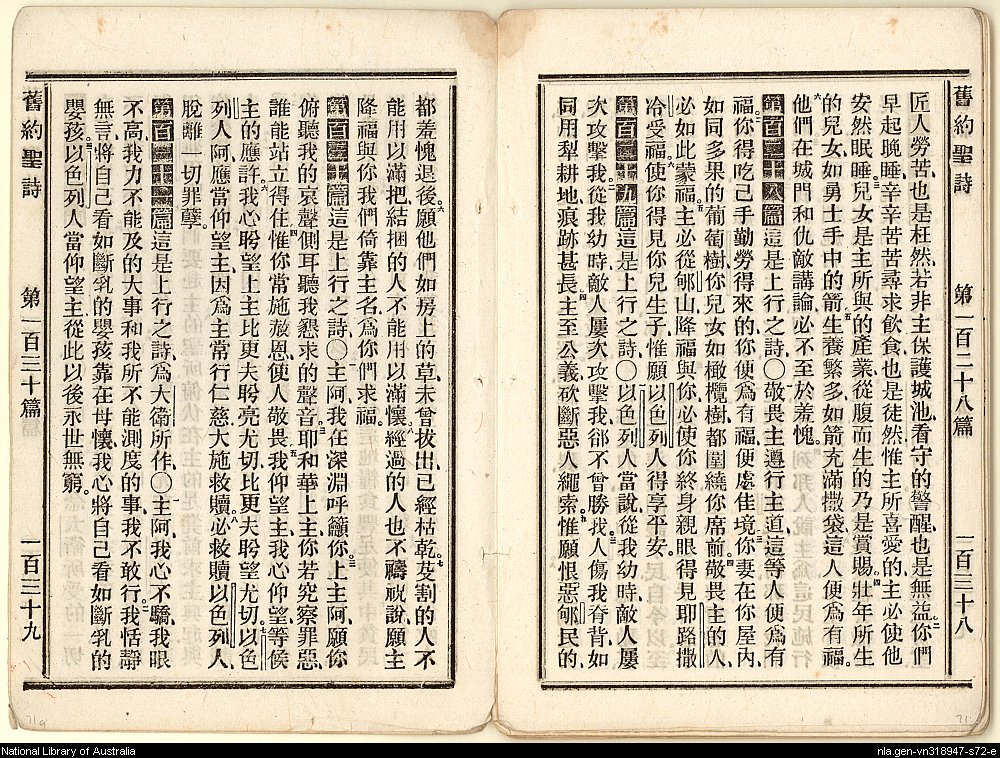 舊約聖詩 第一百二十八篇 一百三十八
匠人勞苦、也是枉然、若非主保護城池、看守的警醒、也是無益。二你們
早起晚睡、辛辛苦苦尋求飲食、也是徒然、惟主所喜愛的、主必使他
安然眠睡。三兒女是主所與的產業、從腹而生的、乃是賞賜。四壯年所生
的兒女、如勇士手中的箭。五生養繁多如箭充滿撒袋、這人便爲有福。
六他們在城門和仇敵講論、必不至於羞愧。
第一百二十八篇這是上行之詩、〇敬畏主遵行主道、這等人便爲有
福。二你得吃己手勤勞得來的、你便爲有福、便處佳境。三你妻在你屋內、
如同多果的葡萄樹、你兒女如橄欖樹都圍繞你席前。四敬畏主的人、
必如此蒙福。五主必從郇山降福與你、必使你終身親眼得見耶路撒
冷受福。六使你得見你兒生子、惟願以色列人得享平安。
第一百二十九篇這是上行之詩、〇以色列人當說、從我幼時、敵人屢
次攻擊我。二從我幼時、敵人屢次攻擊我、郤不曾勝我。三人傷我脊背、如
同用犁耕地、痕跡甚長。四主至公義、砍斷惡人繩索。五惟願恨惡郇民的、
都羞愧退後。六願他們如房上的草、未曾拔出已經枯乾。七芟割的人不
能用以滿把、結捆的人不能用以滿懷。八經過的人也不禱祝說、願主
降福與你、我們倚靠主名、爲你們求福。
第一百三十篇這是上行之詩、〇主阿、我在深淵呼籲你。二上主阿、願你
俯聽我的哀聲、側耳聽我懇求的聲音。三耶和華上主、你若究察罪惡、
誰能站立得住。四惟你常施赦恩、使人敬畏。五我仰望主、我心仰望、等候
主的應許。六我心盼望上主、比更夫盼亮尤切、比更夫盼望尤切。七以色
列人阿、應當仰望主、因爲主常行仁慈、大施救贖。八必救贖以色列人、
脫離一切罪孽。
第一百三十一篇這是上行之詩、爲大衛所作、〇主阿、我心不驕、我眼
不高、我力不能及的大事、和我所不能測度的事、我不敢行。二我恬靜
無言、將自己看如斷乳的嬰孩、靠在母懷、我心將自己看如斷乳的
嬰孩。三以色列人當仰望主、從此以後、永世無窮。
舊約聖詩 第一百三十篇 一百三十九
71a
71
National Library of Australia
nla.gen-vn318947-s72-e